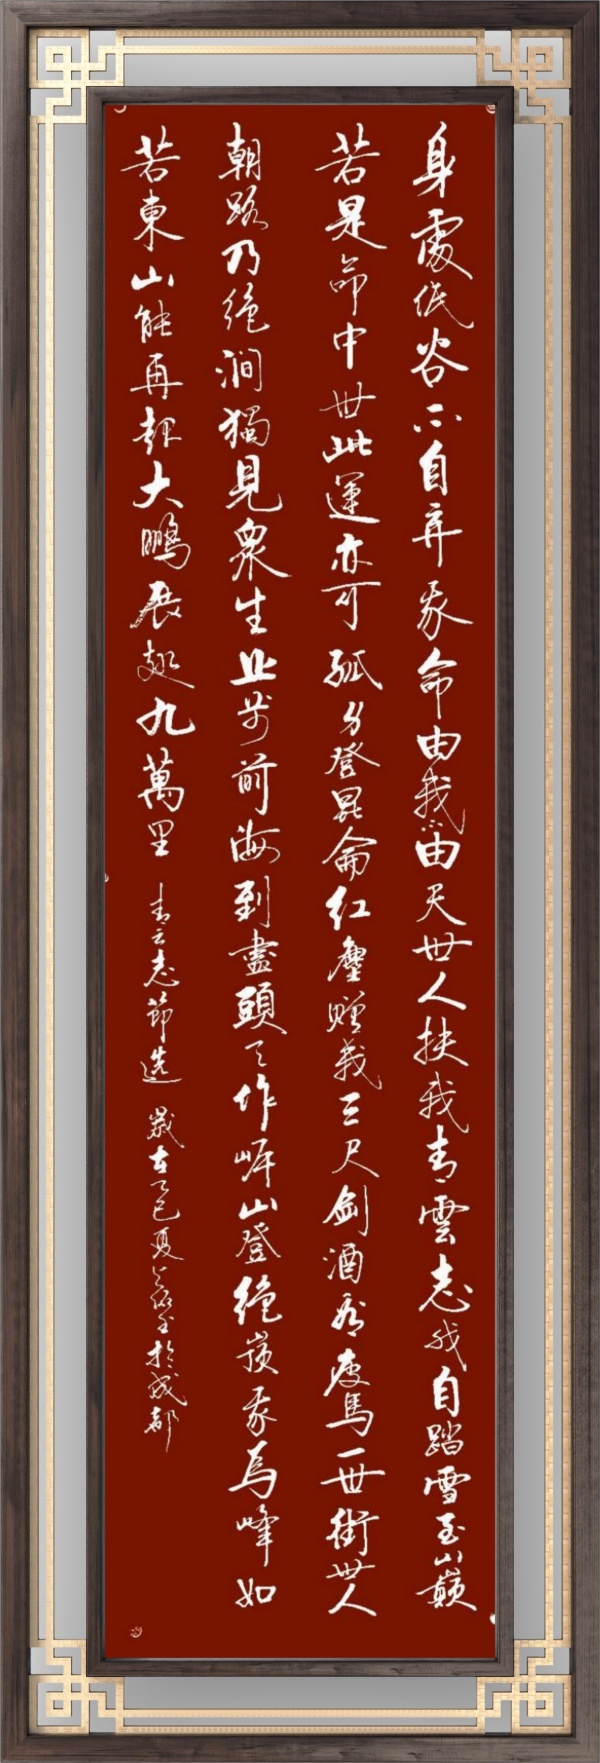 身處低谷不自弃我命由我不由天世人扶我青雲志我自踏雪至山巔
若是命中無此運亦可孤身登昆侖红塵贈我三尺劍酒有瘦馬一世街世人
朝路乃絕澗獨見衆生止步前海到盡頭天作岸山登絕嶺我為峰如
若東山能再起大鹏展翅九萬里 青云志節選 歲在乙巳夏 於成都